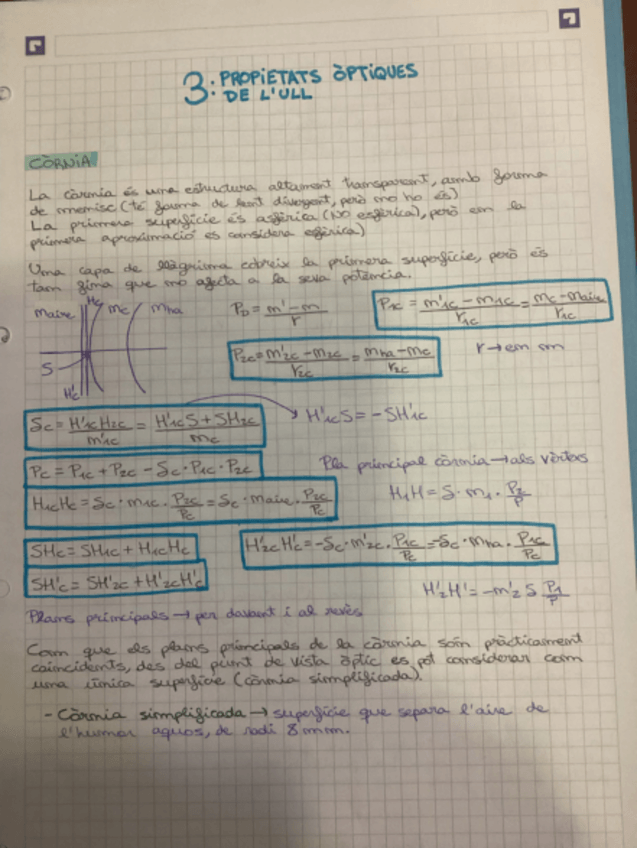 3: PROPIETATS ÒPTIQUES
DE L'ULL
CÒRNIA
La còrnia és una estructura altament transparent, amb forma
de menisc (té forma de lent divergent, però no ho és)
La primera superfície és asfèrica (NO esfèrica), però en la
primera aproximació es considera esfèrica)
Una capa de llàgrima cobreix la primera superfície, però és
tan fina que no afecta a la seva potència.
naire Hc nc nha
S
H'c
P_D = n' - n / r
P1c = n'1c - n1c / r1c = nc - naire / r1c
P2c = n'2c - n2c / r2c = nha - nc / r2c
r → en m
δc = H'1cH2c / n'1c = H'1cS + SH2c / nc
H'1cS = -SH'1c
Pc = P1c + P2c - δc · P1c · P2c
Pla principal còrnia → als vèrtexs
H1cHc = δc · n1c · P2c/Pc = δc · naire · P2c/Pc
H1H = δ · n1 · P2/P
SHc = SH1c + H1cHc
H'2cH'c = -δc · n'2c · P1c/Pc = -δc · nha · P1c/Pc
SH'c = SH'2c + H'2cH'c
H'2H' = -n'2 δ P1/P
Plans principals → per davant i al revés
Com que els plans principals de la còrnia són pràcticament
coincidents, des del punt de vista òptic es pot considerar com
una única superfície (còrnia simplificada).
- Còrnia simplificada → superfície que separa l'aire de
l'humor aquós, de radi 8 mm.